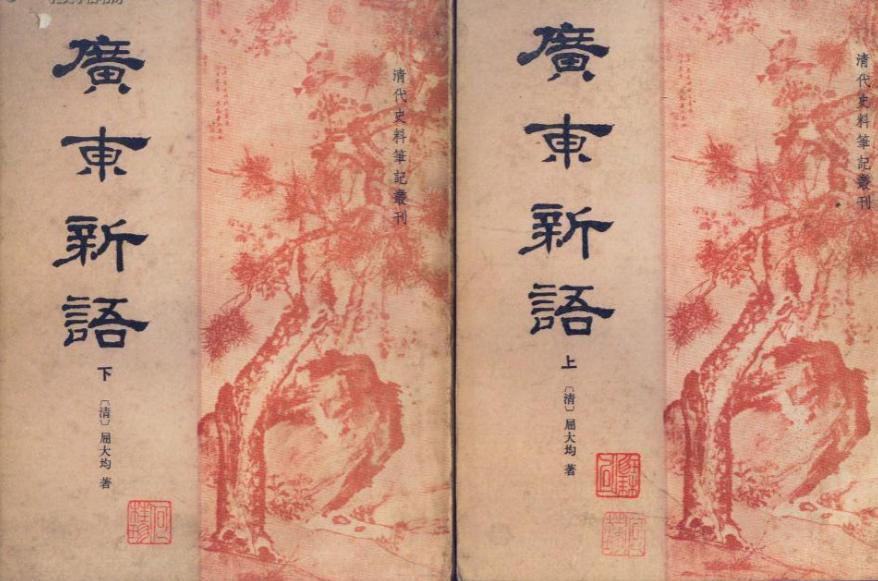 廣東新語
下
〔清〕屈大均 著
清代史料筆記叢刊
廣東新語
上
〔清〕屈大均 著
清代史料筆記叢刊